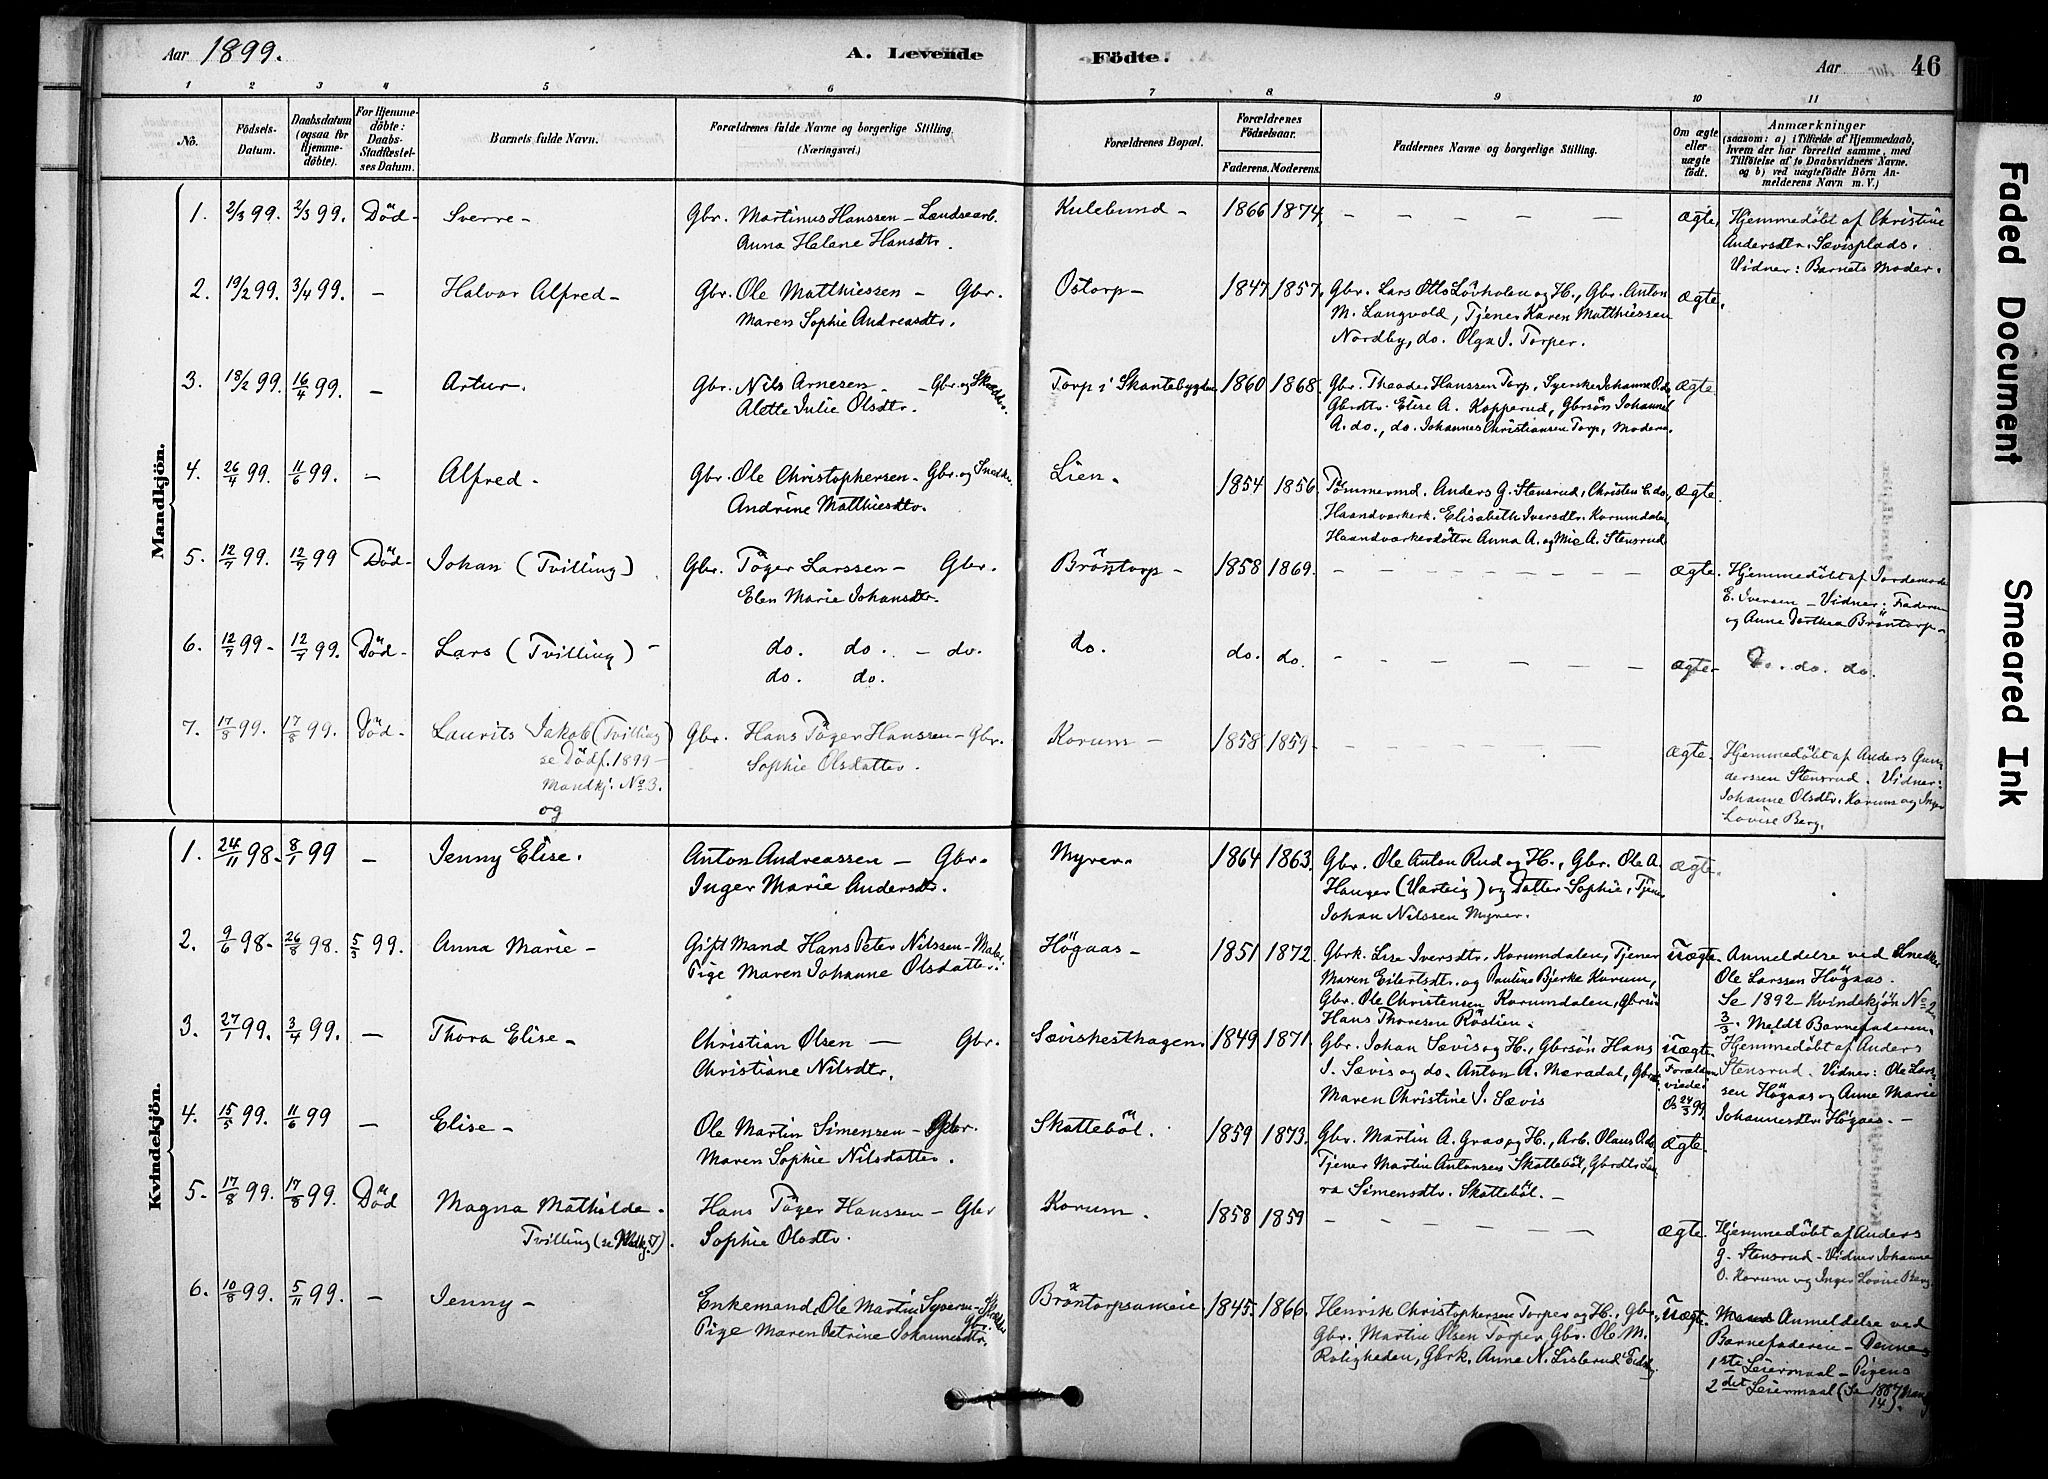 Aar 1899.
A. Levende Födte.
Aar 46
1 2 3 4 5 6 7 8 9 10 11
No.
Födsels-Datum.
Daabsdatum (ogsaa for Hjemmedöbte).
For Hjemmedöbte: Daabs-Stadfæstelses Datum.
Barnets fulde Navn.
Forældrenes fulde Navne og borgerlige Stilling. (Næringsvei.)
Forældrenes Bopæl.
Forældrenes Födselsaar.
Faderens. Moderens.
Faddernes Navne og borgerlige Stilling.
Om ægte eller uægte födt.
Anmærkninger
(saasom: a) i Tilfælde af Hjemmedaab, hvem der har forrettet samme, med Tilföielse af to Daabsvidners Navne. og b) ved uægtefödte Börn Anmelderens Navn m. V.)
Mandkjön.
1. 2/3 99. 2/3 99. Död- Sverre - Gbr. Martinus Hanssen - Landsearb. Kulebund - 1866 1874, - - - - - ægte, Hjemmedöbt af Christine
Anna Helene Hansdtr. Andersdtr. Sævisplads.
Vidner: Barnets Moder.
2. 19/2 99. 3/4 99. - Halvor Alfred - Gbr. Ole Matthiessen - Gbr. Ostorp - 1847 1857. Gbr. Lars Otts Lövholen og H., Gbr. Anton ægte.
Maren Sophie Andreasdtr. M. Langvold, Tjener Karen Matthiessen
Nordby, do. Olga I. Torper.
3. 18/2 99. 16/4 99. - Artur. Gbr. Nils Arnesen - Gbr. og Torp i Skantebygden 1860 1868. Gbr. Theodor Hanssen Torp, Syerske Johanne O. do, ægte.
Alette Julie Olsdtr. Gbrdtr. Elise A. Kopperud, Gbrsön Johannes
A. do., do. Johannes Christiansen Torp, Modern.
4. 26/4 99. 11/6 99. - Alfred. Gbr. Ole Christophersen - Gbr. og Snedker. Lien. 1854 1856. Tömmermd. Anders G. Stensrud, Christen C. do, ægte.
Andrine Matthiesdtr. Haandværkerk. Elisabeth Iversdtr. Korumdalen,
Haandværkerdöttre Anna A. og Mie A. Stensrud
5. 12/7 99. 12/7 99 Död- Johan (Tvilling) Gbr. Töger Larssen - Gbr. Bröntorp - 1858 1869. - - - - - - ægte. Hjemmedöbt af Jordemoder
Elen Marie Johansdtr. E. Iversen - Vidner: Faderen
og Anne Dorthea Bröntorp -
6. 12/7 99 - 12/7 99. Död- Lars (Tvilling) - do. do. - do. do. do. do. - - - - - - ægte - Do. do. do.
do. do.
7. 17/8 99. 17/8 99. Död- Laurits Jakob (Tvilling) Gbr. Hans Töger Hanssen - Gbr. Korum - 1858 1859 - - - - - - ægte. Hjemmedöbt af Anders Gun-
se Dödf. 1899 - Sophie Olsdatter. derssen Stensrud. Vidner:
Mandkj. No 3. Johanne Olsdtr. Korum og Inger
og Lovise Berg.
Kvindekjön.
1. 24/11 98. 8/1 99 - Jenny Elise. Anton Andreassen - Gbr. Myrer. 1864 1863. Gbr. Ole Anton Rud og H., Gbr. Ole A. ægte.
Inger Marie Andersdtr. Hauger (Varteig) og Datter Sophie, Tjener
Johan Nilssen Myrer.
2. 9/6 98 - 26/8 98. 5/3 99. Anna Marie - Gift Mand Hans Peter Nilssen - Maler Högaas - 1851 1872. Gbrk. Lise Iversdtr. Korumdalen, Tjener Uægte. Anmeldelse ved Snedker
Pige Maren Johanne Olsdatter. Maren Eilertsdtr. og Pauline Bjerke Korum, Ole Larssen Högaas.
Gbr. Ole Christensen Korumdalen, Gbrsön Se 1892 - Kvindekjön No 2.
Hans Thoresen Röstien. 3/3. Meldt Barnefaderen.
3. 27/1 99. 3/4 99. - Thora Elise - Christian Olsen - Gbr. Sævishesthagen. 1849 1871. Gbr. Johan Sævis og H., Gbrsön Hans Uægte. Hjemmedöbt af Anders
Christiane Nilsdtr. J. Sævis og do. Anton A. Mæradal, Gbrdtr. Forældr. viede Stensrud. Vidner: Ole Lars-
Maren Christine J. Sævis 24/3 99. sen Högaas og Anne Marie
Johannesdtr. Högaas. -
4. 15/5 99. 11/6 99 - Elise - Ole Martin Simensen - Gbr. Skatteböl. 1859 1873. Gbr. Martin A. Graa og H., Arb. Olaus O. do. ægte.
Maren Sophie Nilsdatter. Tjener Martin Antonsen Skatteböl, Gbrdtr. Lau-
ra Simensdtr. Skatteböl. -
5. 17/8 99. 17/8 99. Död Magna Mathilde. Hans Töger Hanssen - Gbr Korum. 1858 1859 - - - - - ægte. Hjemmedöbt af Anders
Tvilling (se Mdkj. 7). Sophie Olsdtr. G. Stensrud - Vidner Johanne
O. Korum og Inger Lovise Berg.
6. 10/8 99. 5/11 99. - Jenny - Enkemand Ole Martin Gbr. Bröntorpsameie 1845. 1866. Henrik Christophersen Torper og H., Gbr. Uægte. Anmeldelse ved
Pige Maren Petrine Johannesdtr. Gbr. Martin Olsen Torper, Gbr. Ole M. Barnefaderen - Dennes
Roligheden, Gbrk. Anne N. Lislerud 1ste Leiermaal - Pigens
2det Leiermaal (Se 1887 14).
Faded Document
Smeared Ink